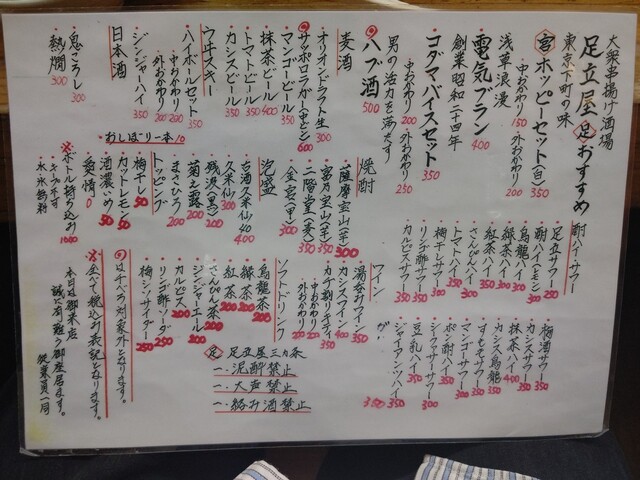 大衆串揚げ酒場
足立屋 足 おすすめ
東京下町の味
宮 ホッピーセット(白) 350
中おかわり 150 外おかわり 200
浅草浪漫
電気ブラン 400
創業昭和二十四年
コダマバイスセット 350
中おかわり 200 外おかわり 250
男の活力を満たす
ハブ酒 500
麦酒
オリオンドラフト生 300
サッポロラガー(中ビン) 600
マンゴービール 350
抹茶ビール 400
トマトビール 350
カシスビール 350
ウヰスキー
ハイボールセット 350
中おかわり 200
外おかわり 200
ジンジャーハイ 350
日本酒
鬼ころし 300
熱燗 300
おしぼり一本 10
酎ハイ・サワー
足立サワー 200
酎ハイ(レモン) 300
烏龍ハイ 300
緑茶ハイ 300
紅茶ハイ 350
さんぴんハイ 300
トマトハイ 350
梅干しサワー 350
リンゴ酢サワー 350
カルピスサワー 350
ワイン
湯呑みワイン 350
カシスワイン 400
カチ割りリッチ 350
中おかわり 200
外おかわり 200
焼酎
薩摩宝山(芋) 300
富乃宝山(芋) 350
二階堂(麦) 350
金宮(甲) 300
泡盛
古酒久米仙 40 400
久米仙 300
残波(黒) 300
菊之露 200
まさひろ 200
トッピング
梅干し 50
カットレモン 50
酒濃いめ 50
愛情 0
ボトル持ち込み 1000
キープ不可
水氷無料
ソフトドリンク
烏龍茶 200
緑茶 200
紅茶 200
さんぴん茶 200
ジンジャーエール 200
カルピス 200
リンゴ酢ソーダ 250
梅シッサイダー 250
梅酒サワー 350
カシスハイ 350
抹茶ハイ 400
カシス烏龍 350
すももサワー 350
マンゴーサワー 300
ポン酎ハイ 350
シークァーサーサワー 300
豆乳ハイ 350
ジャイアンツハイ 350
足 足立屋三カ条
一、泥酔禁止
一、大声禁止
一、絡み酒禁止
はせんべろ対象外となります。
※全べて税込み表記となります。
本日は御来店
誠に有り難う御座居ます。
従業員一同